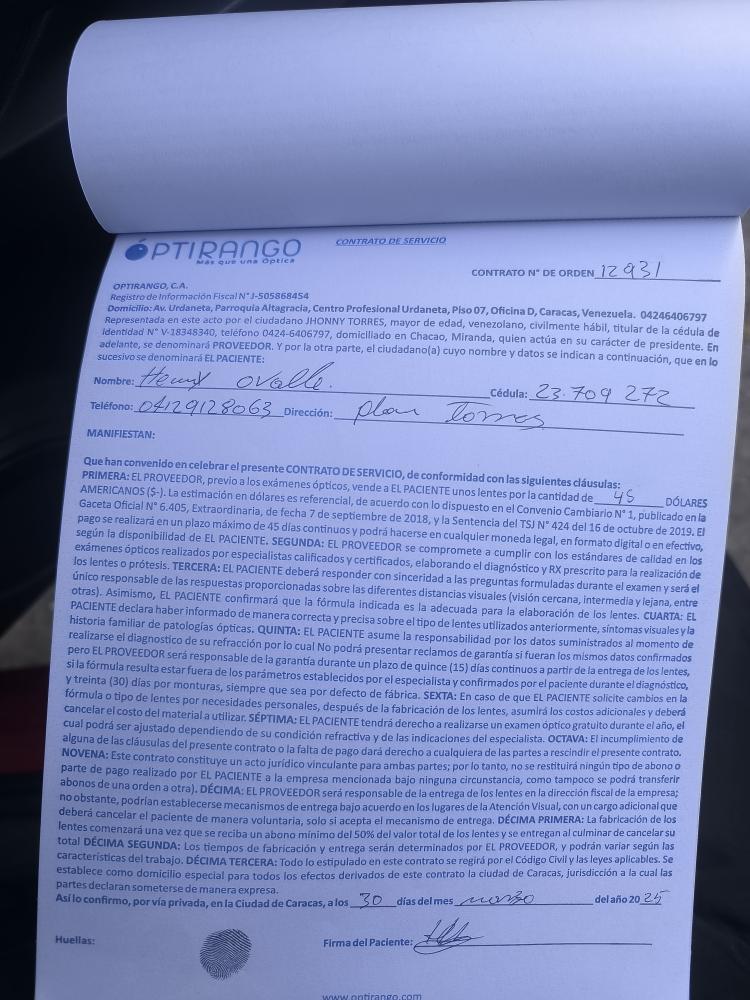 ÓPTIRANGO
Más que una Óptica
CONTRATO DE SERVICIO
CONTRATO N° DE ORDEN 12931
OPTIRANGO, C.A.
Registro de Información Fiscal N° J-505868454
Domicilio: Av. Urdaneta, Parroquia Altagracia, Centro Profesional Urdaneta, Piso 07, Oficina D, Caracas, Venezuela. 04246406797
Representada en este acto por el ciudadano JHONNY TORRES, mayor de edad, venezolano, civilmente hábil, titular de la cédula de
identidad N° V-18348340, teléfono 0424-6406797, domiciliado en Chacao, Miranda, quien actúa en su carácter de presidente. En
adelante, se denominará PROVEEDOR. Y por la otra parte, el ciudadano(a) cuyo nombre y datos se indican a continuación, que en lo
sucesivo se denominará EL PACIENTE:
Nombre: Henry Ovalle. Cédula: 23.709 272
Teléfono: 04129128063 Dirección: Plan Torres
MANIFIESTAN:
Que han convenido en celebrar el presente CONTRATO DE SERVICIO, de conformidad con las siguientes cláusulas:
PRIMERA: EL PROVEEDOR, previo a los exámenes ópticos, vende a EL PACIENTE unos lentes por la cantidad de 45 DÓLARES
AMERICANOS ($-). La estimación en dólares es referencial, de acuerdo con lo dispuesto en el Convenio Cambiario N° 1, publicado en la
Gaceta Oficial N° 6.405, Extraordinaria, de fecha 7 de septiembre de 2018, y la Sentencia del TSJ N° 424 del 16 de octubre de 2019. El
pago se realizará en un plazo máximo de 45 días continuos y podrá hacerse en cualquier moneda legal, en formato digital o en efectivo,
según la disponibilidad de EL PACIENTE. SEGUNDA: EL PROVEEDOR se compromete a cumplir con los estándares de calidad en los
exámenes ópticos realizados por especialistas calificados y certificados, elaborando el diagnóstico y RX prescrito para la realización de
los lentes o prótesis. TERCERA: EL PACIENTE deberá responder con sinceridad a las preguntas formuladas durante el examen y será el
único responsable de las respuestas proporcionadas sobre las diferentes distancias visuales (visión cercana, intermedia y lejana, entre
otras). Asimismo, EL PACIENTE confirmará que la fórmula indicada es la adecuada para la elaboración de los lentes. CUARTA: EL
PACIENTE declara haber informado de manera correcta y precisa sobre el tipo de lentes utilizados anteriormente, síntomas visuales y la
historia familiar de patologías ópticas. QUINTA: EL PACIENTE asume la responsabilidad por los datos suministrados al momento de
realizarse el diagnostico de su refracción por lo cual No podrá presentar reclamos de garantía si fueran los mismos datos confirmados
pero EL PROVEEDOR será responsable de la garantía durante un plazo de quince (15) días continuos a partir de la entrega de los lentes,
si la fórmula resulta estar fuera de los parámetros establecidos por el especialista y confirmados por el paciente durante el diagnóstico,
y treinta (30) días por monturas, siempre que sea por defecto de fábrica. SEXTA: En caso de que EL PACIENTE solicite cambios en la
fórmula o tipo de lentes por necesidades personales, después de la fabricación de los lentes, asumirá los costos adicionales y deberá
cancelar el costo del material a utilizar. SÉPTIMA: EL PACIENTE tendrá derecho a realizarse un examen óptico gratuito durante el año, el
cual podrá ser ajustado dependiendo de su condición refractiva y de las indicaciones del especialista. OCTAVA: El incumplimiento de
alguna de las cláusulas del presente contrato o la falta de pago dará derecho a cualquiera de las partes a rescindir el presente contrato.
NOVENA: Este contrato constituye un acto jurídico vinculante para ambas partes; por lo tanto, no se restituirá ningún tipo de abono o
parte de pago realizado por EL PACIENTE a la empresa mencionada bajo ninguna circunstancia, como tampoco se podrá transferir
abonos de una orden a otra). DÉCIMA: EL PROVEEDOR será responsable de la entrega de los lentes en la dirección fiscal de la empresa;
no obstante, podrían establecerse mecanismos de entrega bajo acuerdo en los lugares de la Atención Visual, con un cargo adicional que
deberá cancelar el paciente de manera voluntaria, solo si acepta el mecanismo de entrega. DÉCIMA PRIMERA: La fabricación de los
lentes comenzará una vez que se reciba un abono mínimo del 50% del valor total de los lentes y se entregan al culminar de cancelar su
total DÉCIMA SEGUNDA: Los tiempos de fabricación y entrega serán determinados por EL PROVEEDOR, y podrán variar según las
características del trabajo. DÉCIMA TERCERA: Todo lo estipulado en este contrato se regirá por el Código Civil y las leyes aplicables. Se
establece como domicilio especial para todos los efectos derivados de este contrato la ciudad de Caracas, jurisdicción a la cual las
partes declaran someterse de manera expresa.
Así lo confirmo, por vía privada, en la Ciudad de Caracas, a los 30 días del mes marzo del año 20 25
Huellas:
Firma del Paciente:
www.optirango.com